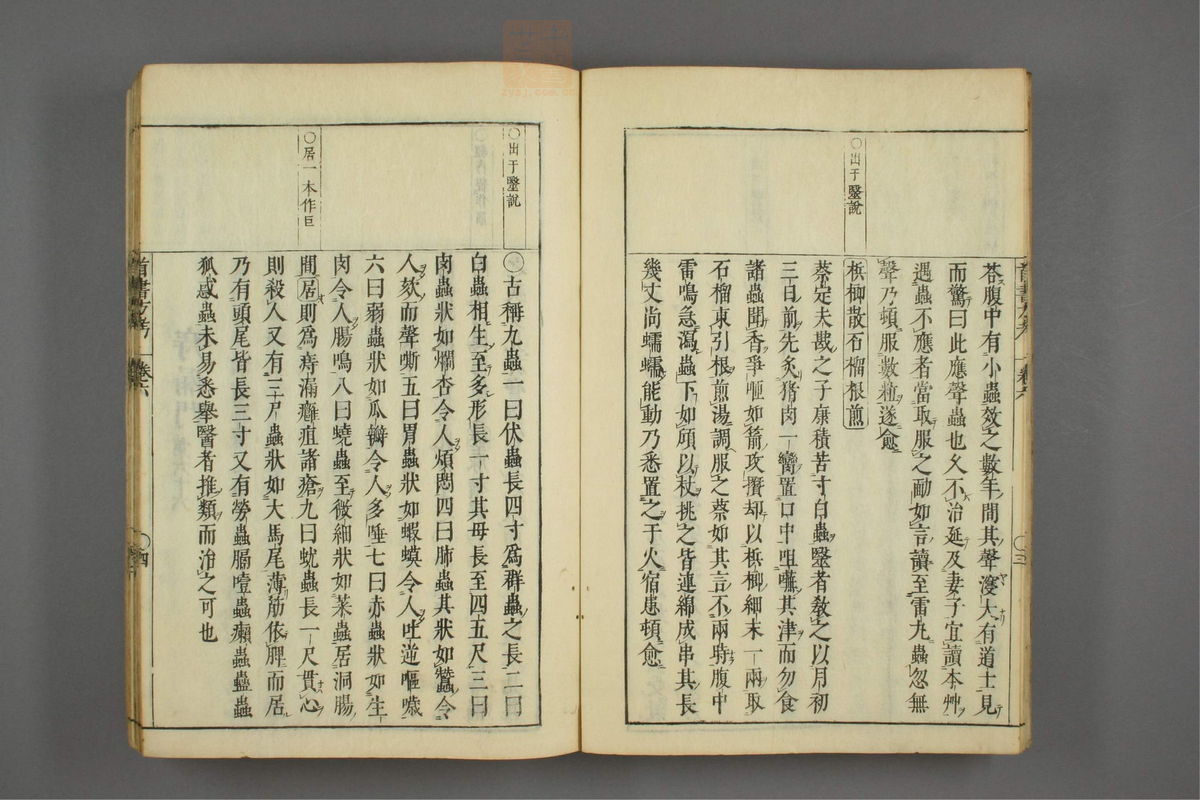 荅腹中有小蟲效之數年間其聲寖大有道士見
而驚曰此應聲蟲也久不治延及妻子宜讀本艸
遇蟲不應者當取服之勔如言讀至雷丸蟲忽無
聲乃頓服數粒遂愈
梹榔散石榴根煎
蔡定夫戡之子康積苦寸白蟲醫者敎之以月初
三日前先炙猪肉一臠置口中咀嚥其津而勿食
諸蟲聞香爭咂如箭攻攢却以梹榔細末一兩取
石榴東引根煎湯調服之蔡如其言不兩時腹中
雷鳴急瀉蟲下如頎以杖挑之皆連綿成串其長
幾丈尚蠕蠕能動乃悉置之于火宿患頓愈
〇出于毉說
〇古稱九蟲一曰伏蟲長四寸爲群蟲之長二曰
白蟲相生至多形長一寸其母長至四五尺三曰
肉蟲狀如爛杏令人煩悶四曰肺蟲其狀如蠶令
人欬而聲嘶五曰胃蟲狀如蝦蟆令人吐逆嘔噦
六曰弱蟲狀如瓜瓣令人多唾七曰赤蟲狀如生
肉令人腸鳴八曰蟯蟲至微細狀如菜蟲居洞腸
間居則爲痔漏癰疽諸瘡九曰蚘蟲長一尺貫心
則殺人又有三尸蟲狀如大馬尾薄筋依脾而居
乃有頭尾皆長三寸又有勞蟲膈噎蟲癩蟲蠱蟲
狐惑蟲未易悉舉醫者推類而治之可也
〇出于毉說
〇居一本作巨
首書方考
卷六
〇三
首書方考
卷六
〇四